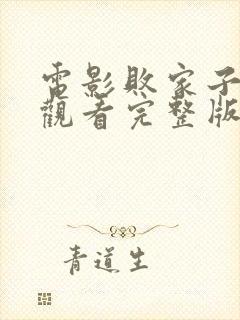 電影敗家子
觀看完整版
青道生